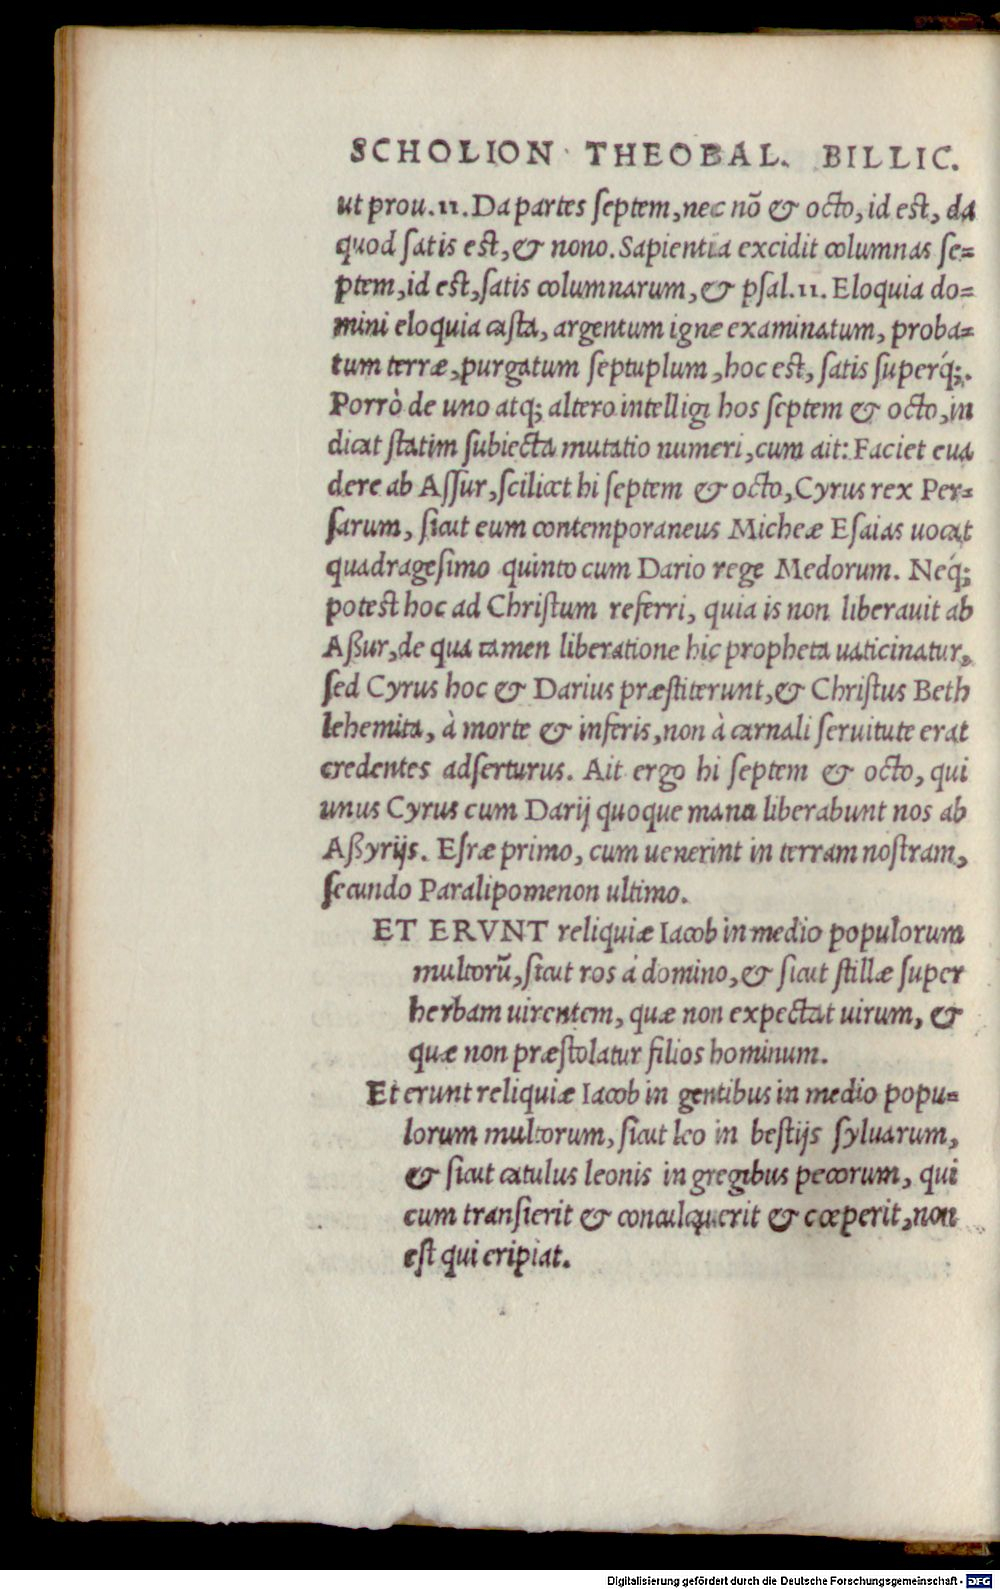 SCHOLION THEOBAL. BILLIC.
ut prou. 11. Da partes ſeptem, nec nō & octo, id est, da
quod ſatis est, & nono. Sapientia excidit columnas ſe=
ptem, id est, ſatis columnarum, & pſal. 11. Eloquia do=
mini eloquia casta, argentum igne examinatum, proba=
tum terræ, purgatum ſeptuplum, hoc est, ſatis ſuperq́;.
Porrò de uno atq; altero intelligi hos ſeptem & octo, in
dicat ſtatim ſubiecta mutatio numeri, cum ait: Faciet eua
dere ab Aſſur, ſcilicet hi ſeptem & octo, Cyrus rex Per=
ſarum, ſicut eum contemporaneus Micheæ Eſaias uocat
quadrageſimo quinto cum Dario rege Medorum. Neq́;
potest hoc ad Chriſtum referri, quia is non liberauit ab
Aßur, de qua tamen liberatione hic propheta uaticinatur,
ſed Cyrus hoc & Darius præſtiterunt, & Chriſtus Beth
lehemita, à morte & inferis, non à carnali ſeruitute erat
credentes adſerturus. Ait ergo hi ſeptem & octo, qui
unus Cyrus cum Darij quoque manu liberabunt nos ab
Aßyrijs. Eſræ primo, cum uenerint in terram noſtram,
ſecundo Paralipomenon ultimo.
ET ERVNT reliquiæ Iacob in medio populorum
multorū, ſicut ros á domino, & ſicut ſtillæ ſuper
herbam uirentem, quæ non expectat uirum, &
quæ non præſtolatur filios hominum.
Et erunt reliquiæ Iacob in gentibus in medio popu=
lorum multorum, ſicut leo in beſtijs ſyluarum,
& ſicut catulus leonis in gregibus pecorum, qui
cum tranſierit & conculquerit & cœperit, non
eſt qui eripiat.
Digitalisierung gefördert durch die Deutsche Forschungsgemeinschaft - DFG